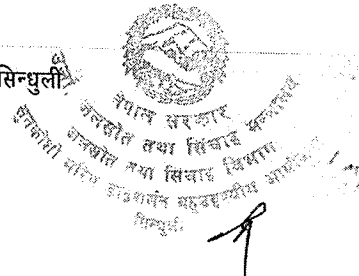 सिन्धुली
नेपाल सरकार
जलस्रोत तथा सिंचाइ मन्त्रालय
जलस्रोत तथा सिंचाइ विभाग
सुनकोशी मरिण डाइभर्सन बहुउद्देश्यीय
सिन्धुली